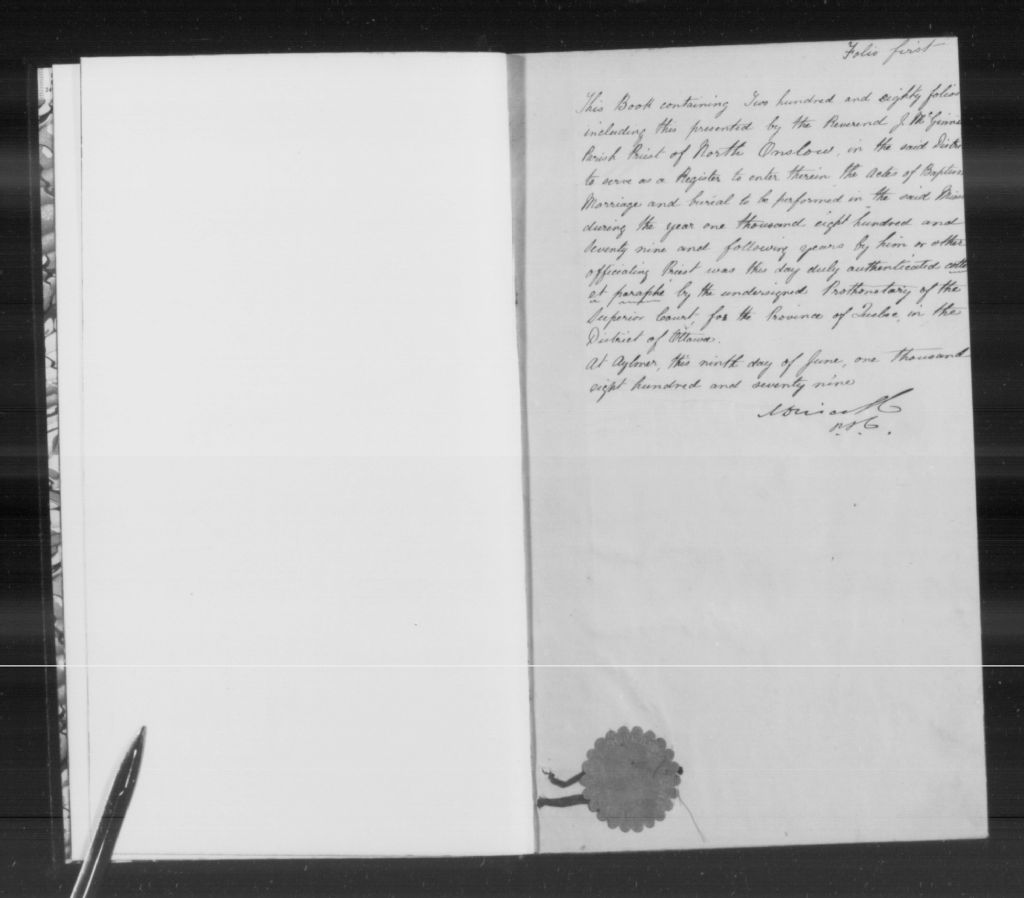 Folio first
This Book containing Two hundred and eighty folios
including this presented by the Reverend J. McGiane
Parish Priest of North Onslow, in the said Distri
to serve as a Register to enter therein the actes of Baptism
Marriage and burial to be performed in the said Miss
during the year one thousand eight hundred and
Seventy nine and following years by him or other
officiating Priest was this day duly authenticated cotté
et paraphé by the undersigned Prothonotary of the
Superior Court, for the Province of Quebec, in the
District of Ottawa.
At Aylmer, this ninth day of June, one thousand
eight hundred and seventy nine